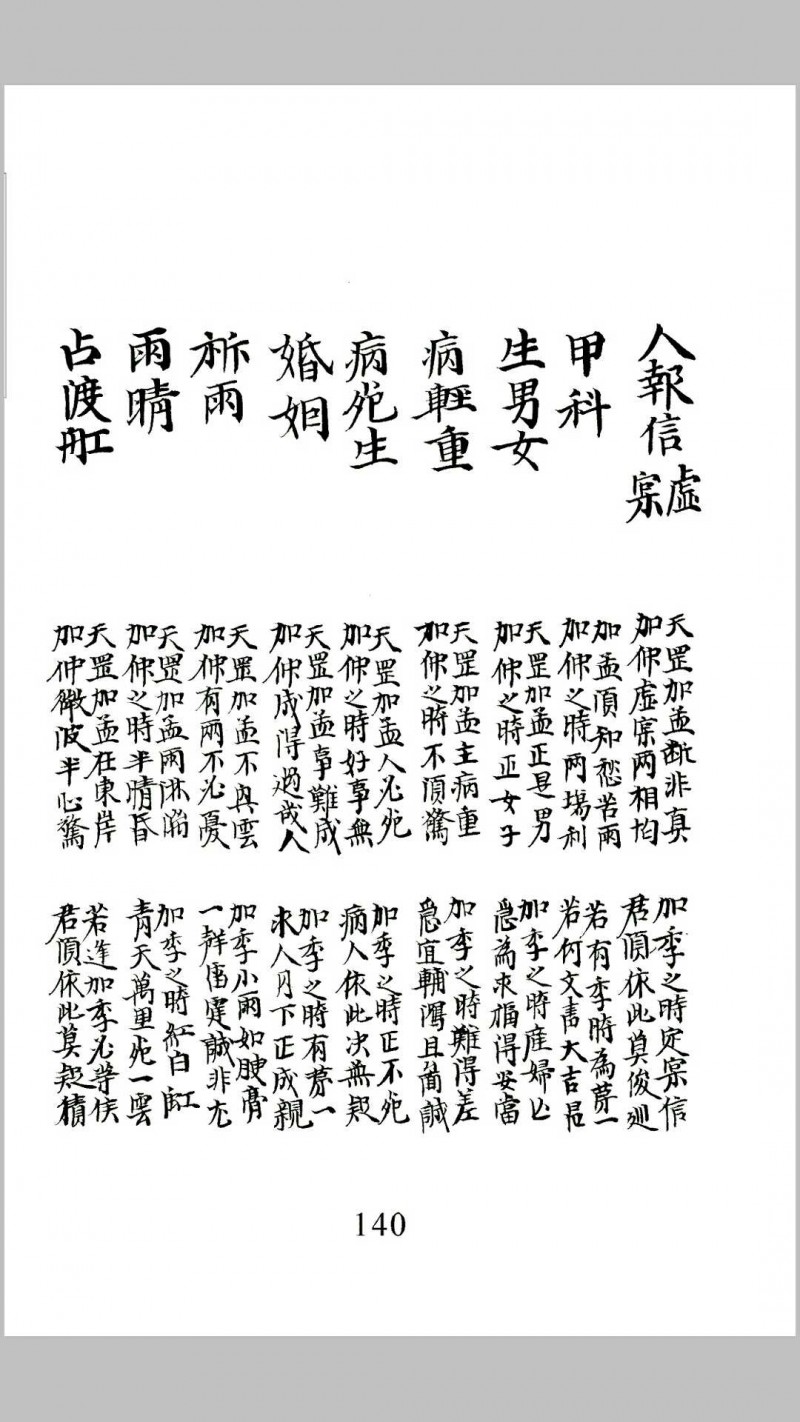 人報信虛寀
天罡加孟断非真
加仲虛寀两相均
加季之時定寀信
君須依此莫俊巡
甲科
加孟須知愁苦雨
加仲之時两場利
若有季時為一
若何文書大吉昌
生男女
天罡加孟正是男
加仲之時正女子
加季之時産婦亡
急為求福得安當
病軽重
天罡加孟主病重
加仲之時不須驚
加季之時難得差
急宜輔瀉且誠
病死生
天罡加孟人必死
加仲之時好事無
加季之時正不死
病人依此决無疑
婚姻
天罡加孟事難成
加仲成得過歲人
加季之時有一
求人月下正成親
祈雨
天罡加孟不興雲
加仲有雨不必憂
加季小雨如腴膏
一群虔誠非尤
雨晴
天罡加孟雨淋
加仲之時半晴昏
加季之時紅白缸
青天萬里死一雲
占渡舡
天罡加孟在東岸
加仲微波半心驚
若逢加季必等侯
君須依此莫疑積
140